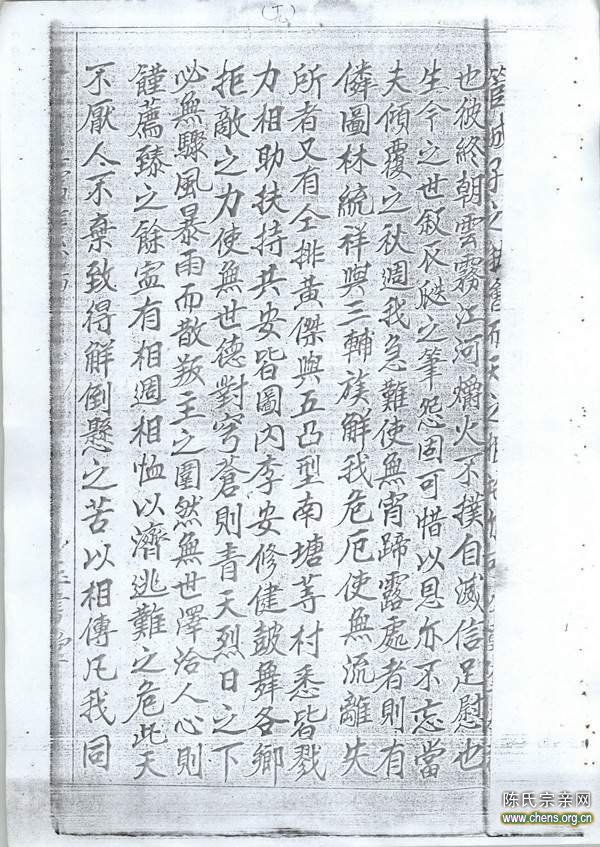 (九)
也彼終朝雲霧江河爝火不撲自滅信足慰也
生今之世叙民艱之筆怨固可惜以恩亦不忘當
夫傾覆之秋週我急難使無宵蹄露處者則有
僯圖林統祥與三輔族解我危厄使無流離失
所者又有仝排黃傑與五凸型南塘等村悉皆戮
力相助扶持共安皆圖內李安修健鼓舞各鄉
拒敵之力使無世德對穹蒼則青天烈日之下
必無驟風暴雨而散叛王之圍然無世澤洽人心則
饉薦臻之餘寍有相週相恤以濟逃難之危此天
不厭人不棄致得解倒懸之苦以相傳凡我同
陈氏宗亲网
www.chens.org.cn